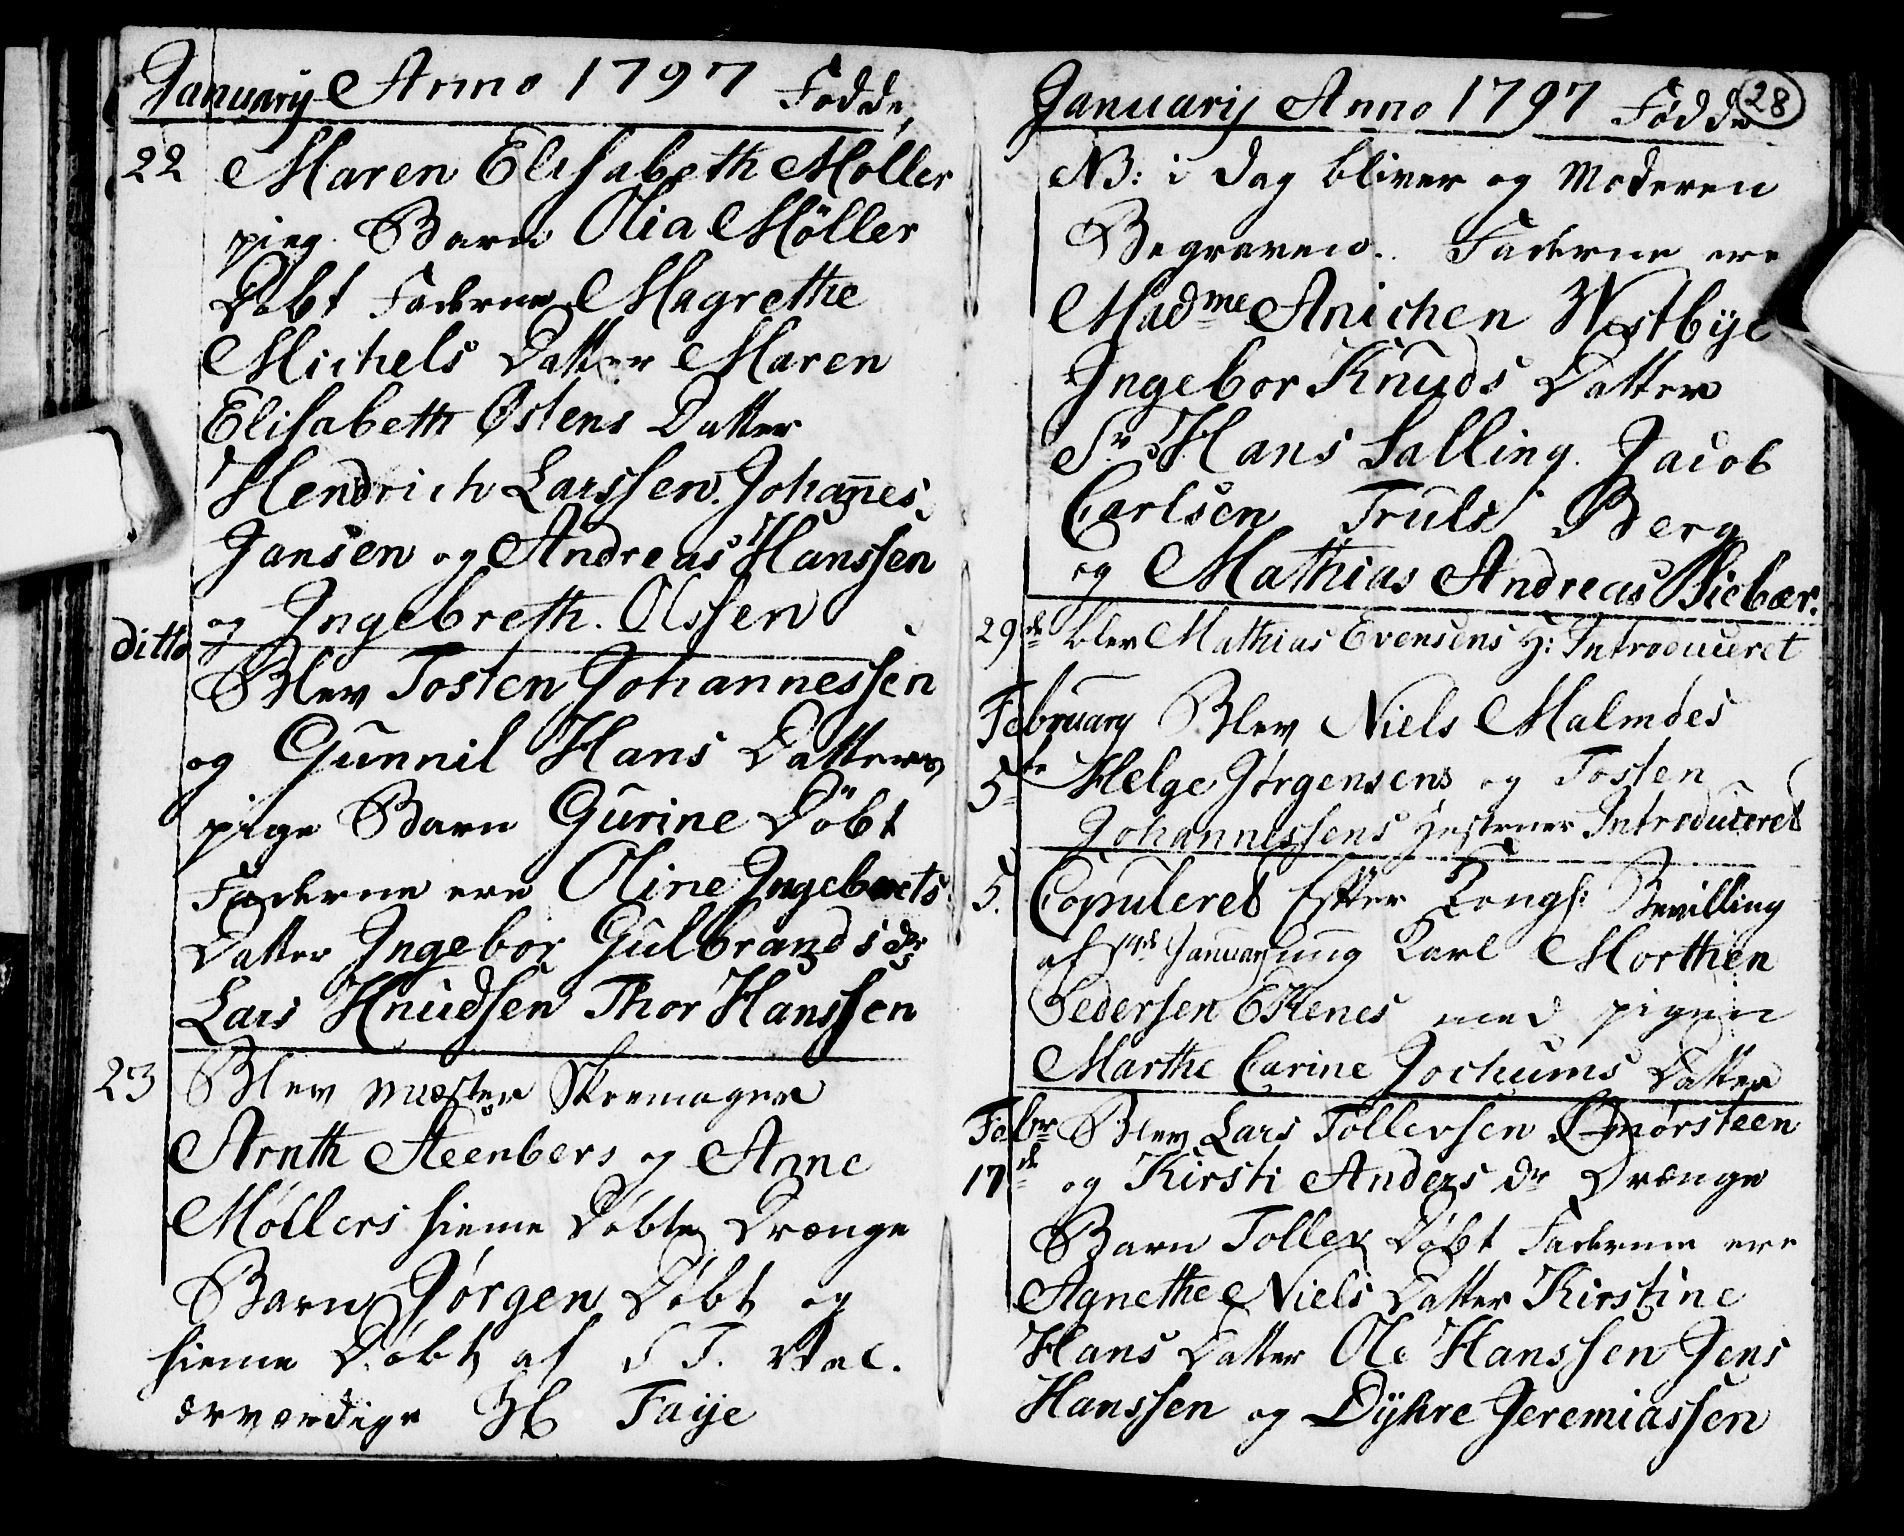 January Anno 1797 Fødde
22 Maren Elisabeth Møller
pieg Barn Olia Möller
Døbt Faderne Magrethe
Michels Datter Maren
Elisabeth Østens Datter
Hendrich Larssen. Johannes
Jansen og Andreas Hanssen
og Ingebreth. Olssen
ditto Blev Tosten Johannessen
og Gunnil Hans Datters
pige Barn Gurine Döbt
Faderne ere Oline Ingebrets
Datter Ingebor Gulbrands dr
Lars Knudsen Thor Hanssen
23 Blev Mæster Skremager
Arnth Steenbers og Anne
Møllers hieme Døbte Drænge
Barn Jørgen Døbt og
hieme Døbt af S T. Vel.
ærværdige Hr Faije
28
Januarij Anno 1797 Fødde
NB: i dag bliver og Moderen
Begraven. Faderne ere
Madme Anichen Westbye
Ingebor Knuds Datter
Sr Hans Salling. Jacob
Carlsen Truls Berg
og Mathias Andreas Siebær.
29de blev Mathias Evensens H: Introduceret
February Blev Niels Malmdes
5te Helge Jørgensens og Tosten
Johannessens Hustruer Introduceret
5. Copuleret Efter Kongl: Bevilling
af January ung Karl Morthen
Pedersen Ekenes med pigen
Marthe Carine Jochums Datter
Febr Blev Lars Tollevsen Smørsteen
17de og Kirsti Anders dr Drænge
Barn Tollev Døbt Faderne ere
Agnethe Niels Datter Kirstine
Hans Datter Ole Hanssen Jens
Hanssen og Dykre Jeremiassen